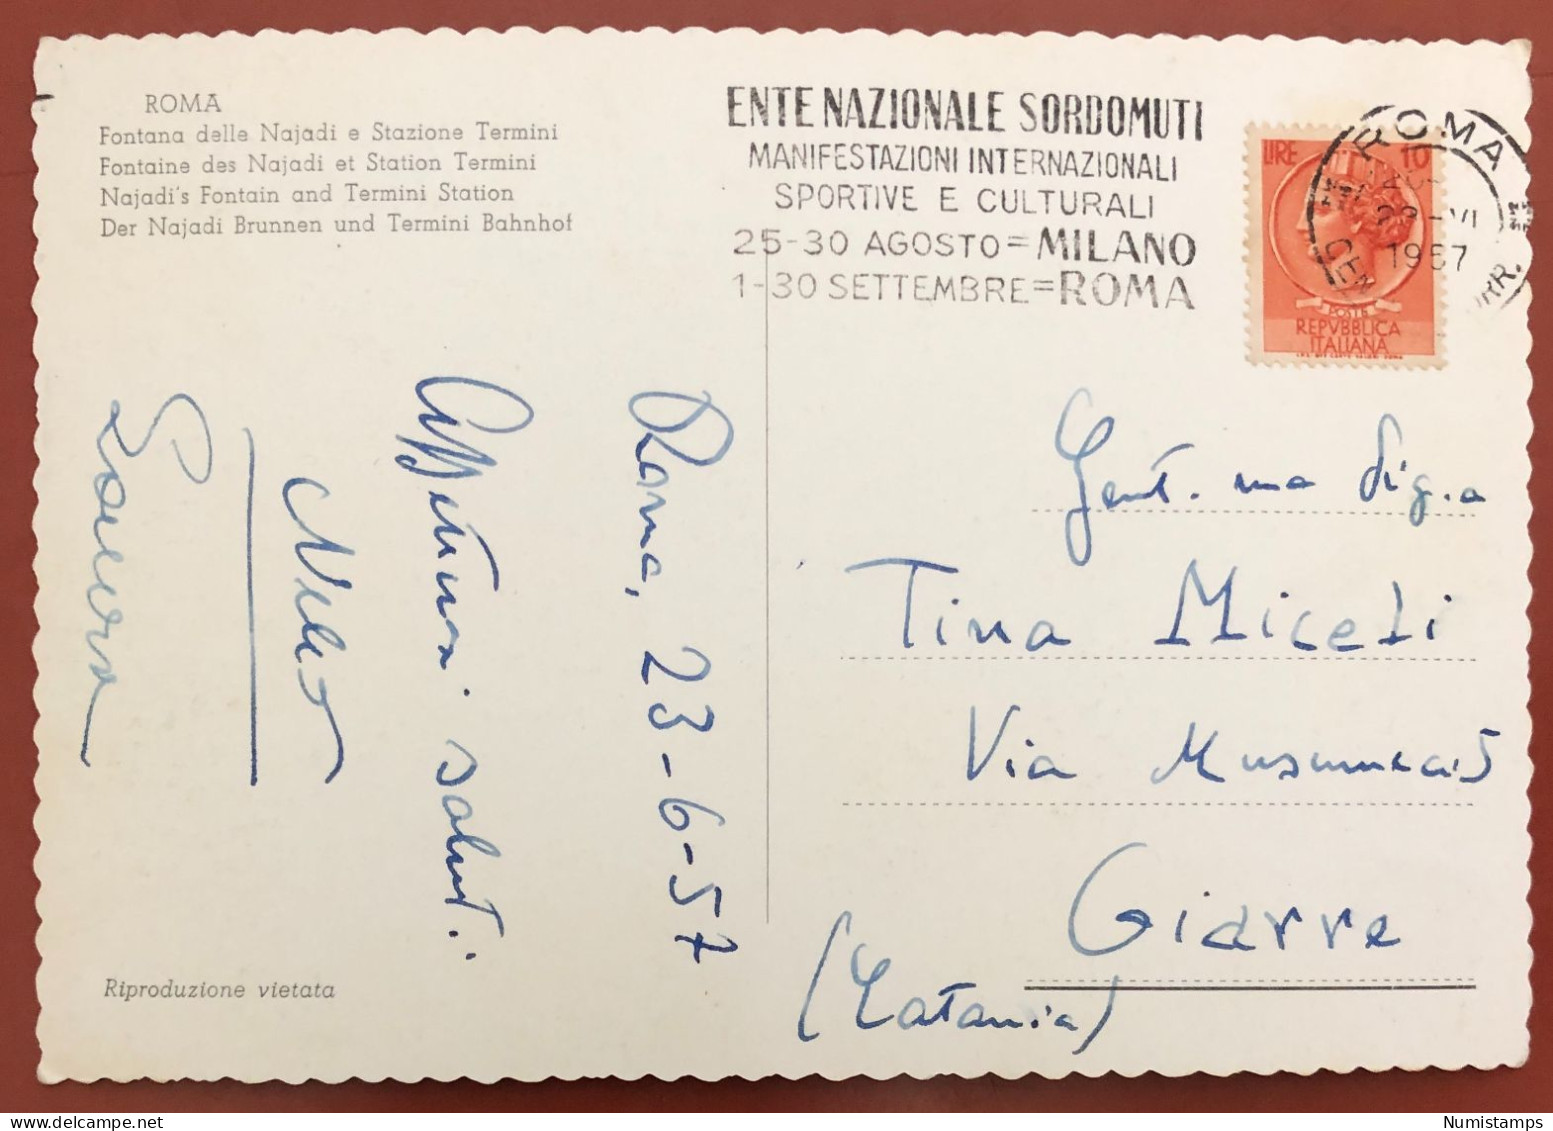 ROMA
Fontana delle Najadi e Stazione Termini
Fontaine des Najadi et Station Termini
Najadi's Fontain and Termini Station
Der Najadi Brunnen und Termini Bahnhof
ENTE NAZIONALE SORDOMUTI
MANIFESTAZIONI INTERNAZIONALI
SPORTIVE E CULTURALI
25-30 AGOSTO = MILANO
1-30 SETTEMBRE = ROMA
ROMA
-VI
1957
LIRE 10
POSTE
REPVBBLICA
ITALIANA
Roma, 23-6-57
Affettuosi saluti.
Gent.ma Sig.a
Tina Miceli
Via Musumeci 5
Giarre
(Catania)
Riproduzione vietata
Numistamps